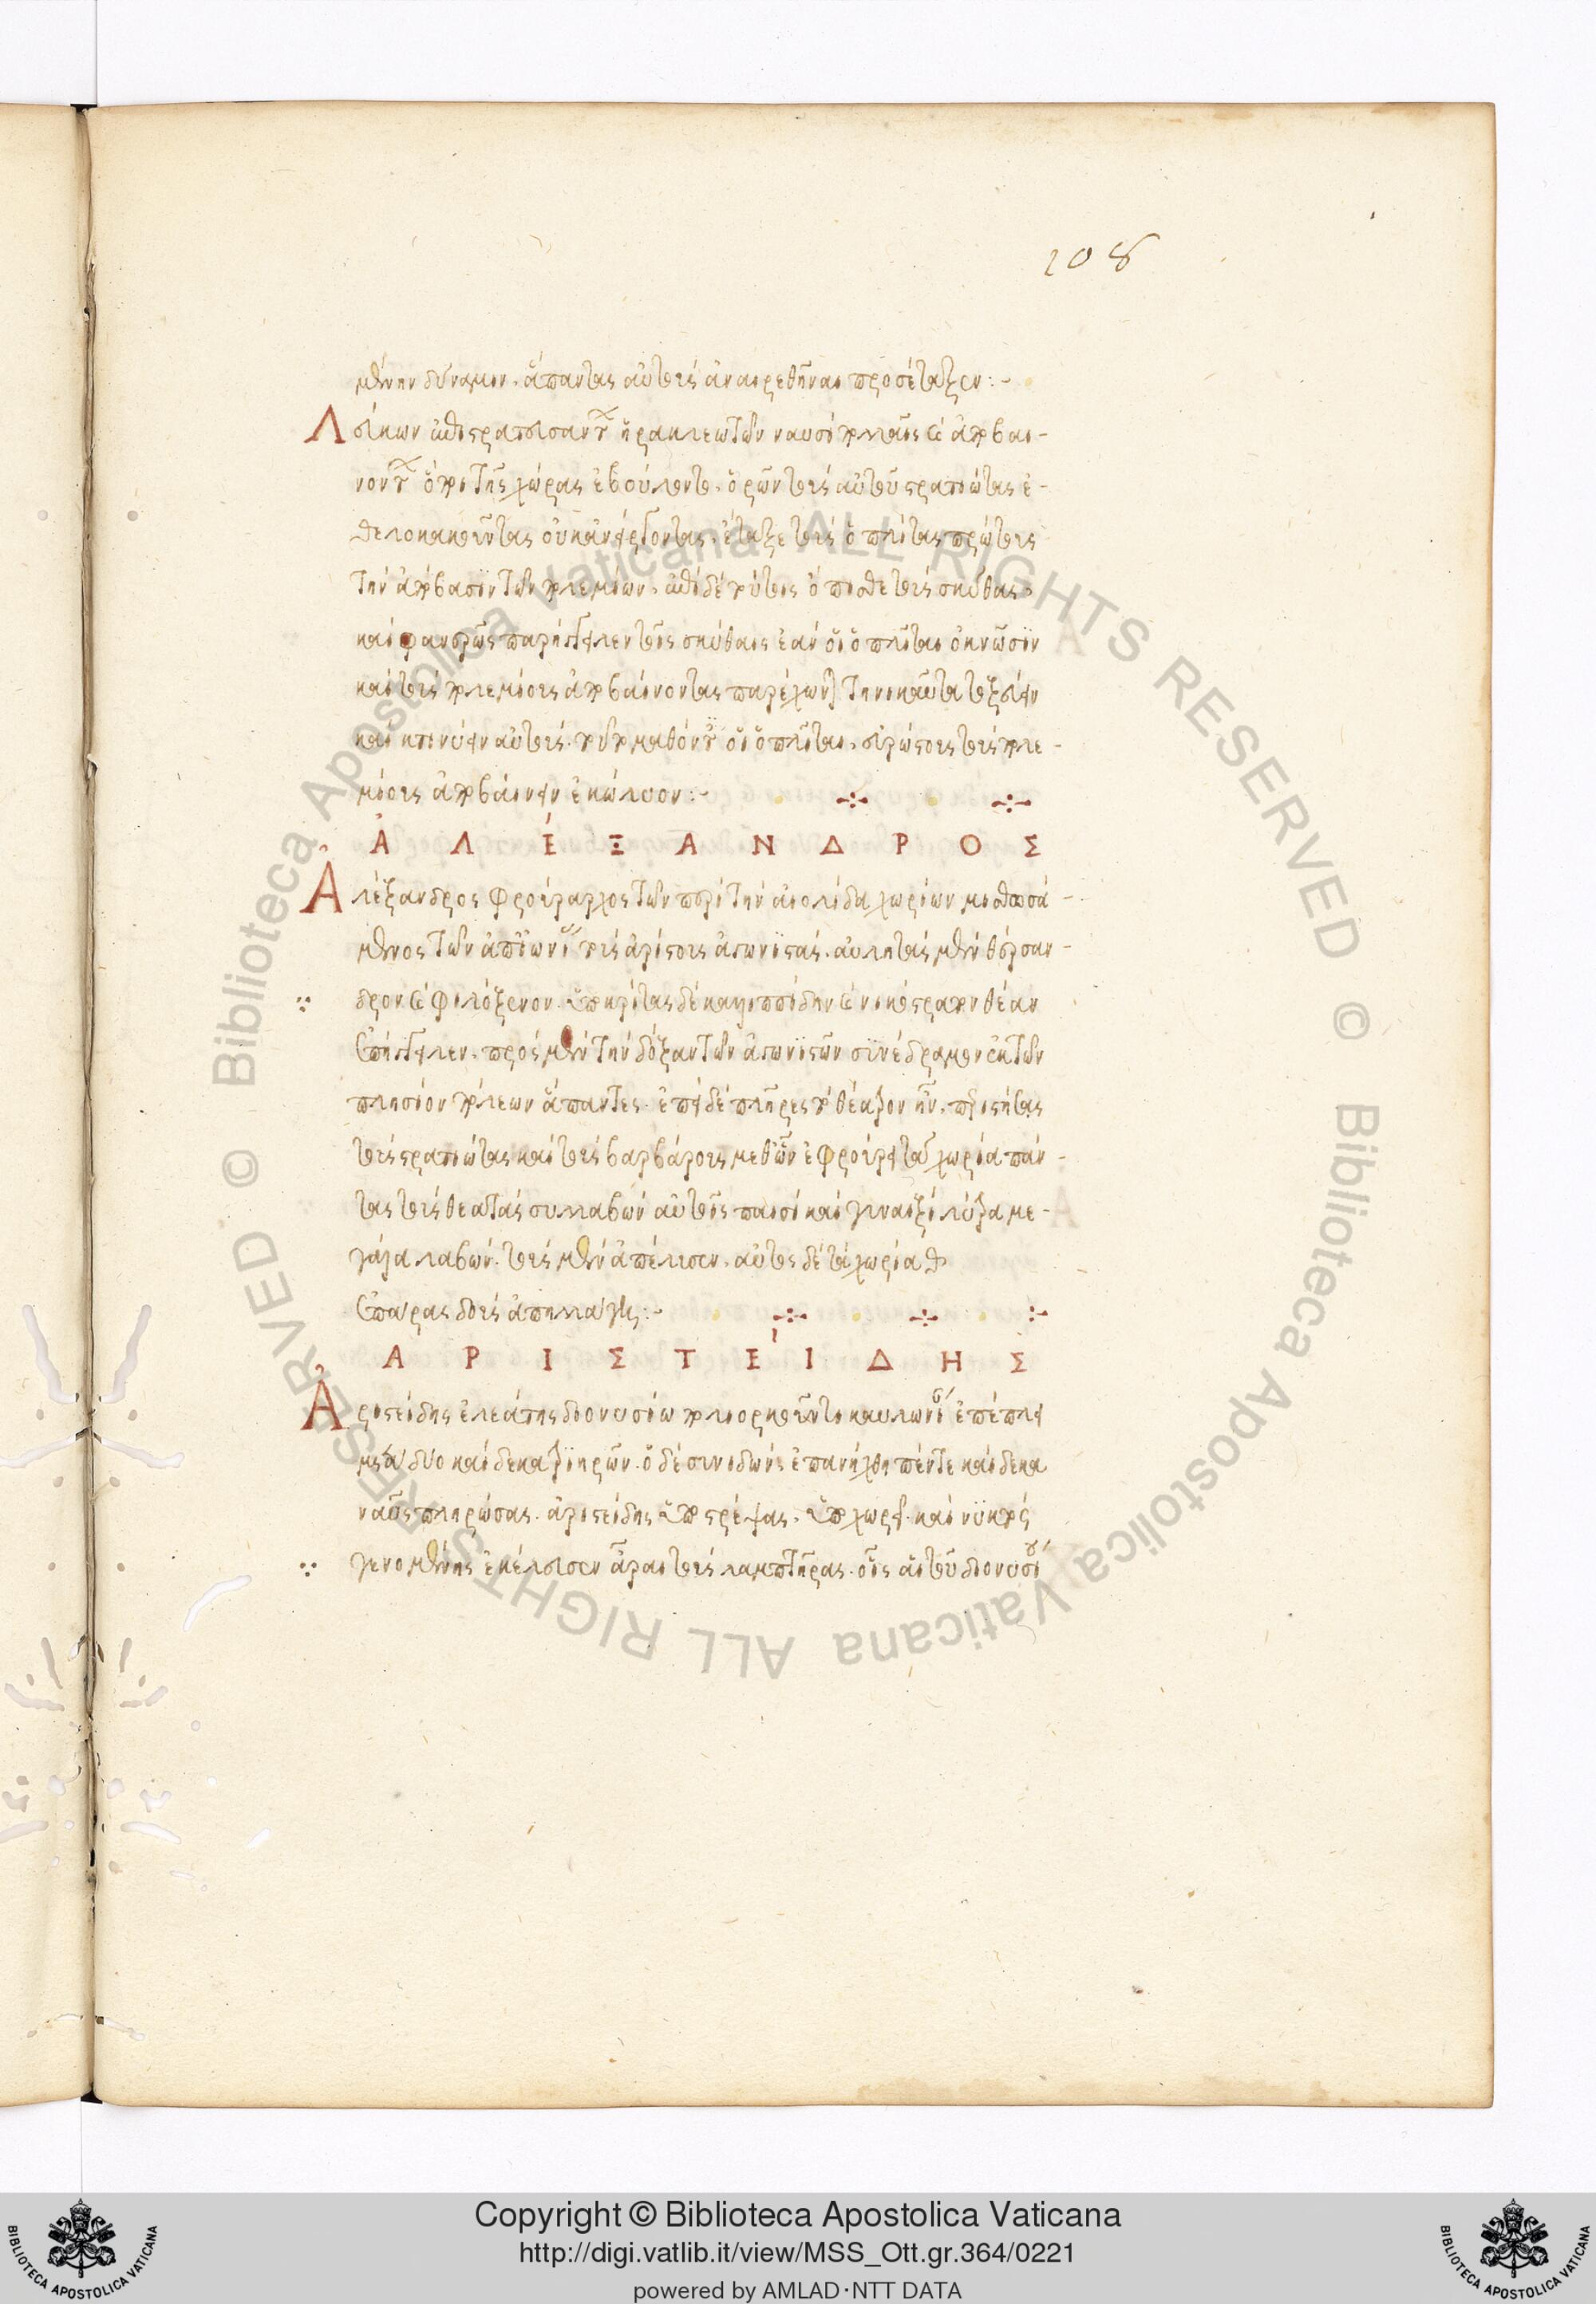 108
μένην δύναμιν. ἅπαντας αὐτοὺς ἀναιρεθῆναι προσέταξεν:-
Λεύκων ἐπιστρατευσάντων ἡρακλεωτῶν ναυσὶ πολλαῖς καὶ ἀποβαι-
νόντων ὅποι τῆς χώρας ἐβούλοντο. ὁρῶν τοὺς αὑτοῦ στρατιώτας ἐ-
θελοκακοῦντας οὐκ ἀνείργοντας. ἔταξε τοὺς ὁπλίτας πρώτους
τὴν ἀπόβασιν τῶν πολεμίων. ἐπὶ δὲ τούτοις ὄπισθε τοὺς σκύθας.
καὶ φανερῶς παρήγγειλεν τοῖς σκύθαις ἐὰν οἱ ὁπλῖται ὀκνῶσιν
καὶ τοὺς πολεμίους ἀποβαίνοντας παρέχωνται τηνικαῦτα τοξεύειν
καὶ κτιννύειν αὐτούς. τοῦτο μαθόντες οἱ ὁπλῖται. εὐρώστως τοὺς πολε-
μίους ἀποβαίνειν ἐκώλυον:-
ἈΛΈΞΑΝΔΡΟΣ
Ἀλέξανδρος φρούραρχος τῶν περὶ τὴν αἰολίδα χωρίων μισθωσά-
μενος τῶν ἀπ' ἰωνίας τοὺς ἀρίστους ἀγωνιστάς. αὐλητὰς μὲν θέρσαν-
δρον καὶ φιλόξενον. ὑποκριτὰς δὲ καλλιππίδην καὶ νικόστρατον θέαν
ἐπήγγειλεν. πρὸς μὲν τὴν δόξαν τῶν ἀγωνιστῶν συνέδραμον ἐκ τῶν
πλησίον πόλεων ἅπαντες. ἐπεὶ δὲ πλῆρες τὸ θέατρον ἦν. περιστήσας
τοὺς στρατιώτας καὶ τοὺς βαρβάρους μεθ' ὧν ἐφρούρει τὰ χωρία πάν-
τας τοὺς θεατὰς συλλαβὼν αὐτοῖς παισὶ καὶ γυναιξὶ λύτρα με-
γάλα λαβών. τοὺς μὲν ἀπέλυσεν. αὐτὸς δὲ τὰ χωρία
παραδοὺς ἀπηλλάγη:-
ΑΡΙΣΤΕΊΔΗΣ
Ἀριστείδης ἐλεάτης διονυσίω πολιορκοῦντι καυλωνίαν ἐπέπλει
μετὰ δύο καὶ δέκα τριηρῶν. ὁ δὲ συνιδὼν ἐπανήχθη πέντε καὶ δέκα
ναῦς πληρώσας. ἀριστείδης ὑποστρέψας. ὑποχωρεῖ. καὶ νυκτὸς
γενομένης ἐκέλευσεν ἆραι τοὺς λαμπτῆρας. οἷς αἱ τοῦ διονυσίου
Copyright © Biblioteca Apostolica Vaticana
http://digi.vatlib.it/view/MSS_Ott.gr.364/0221
powered by AMLAD·NTT DATA